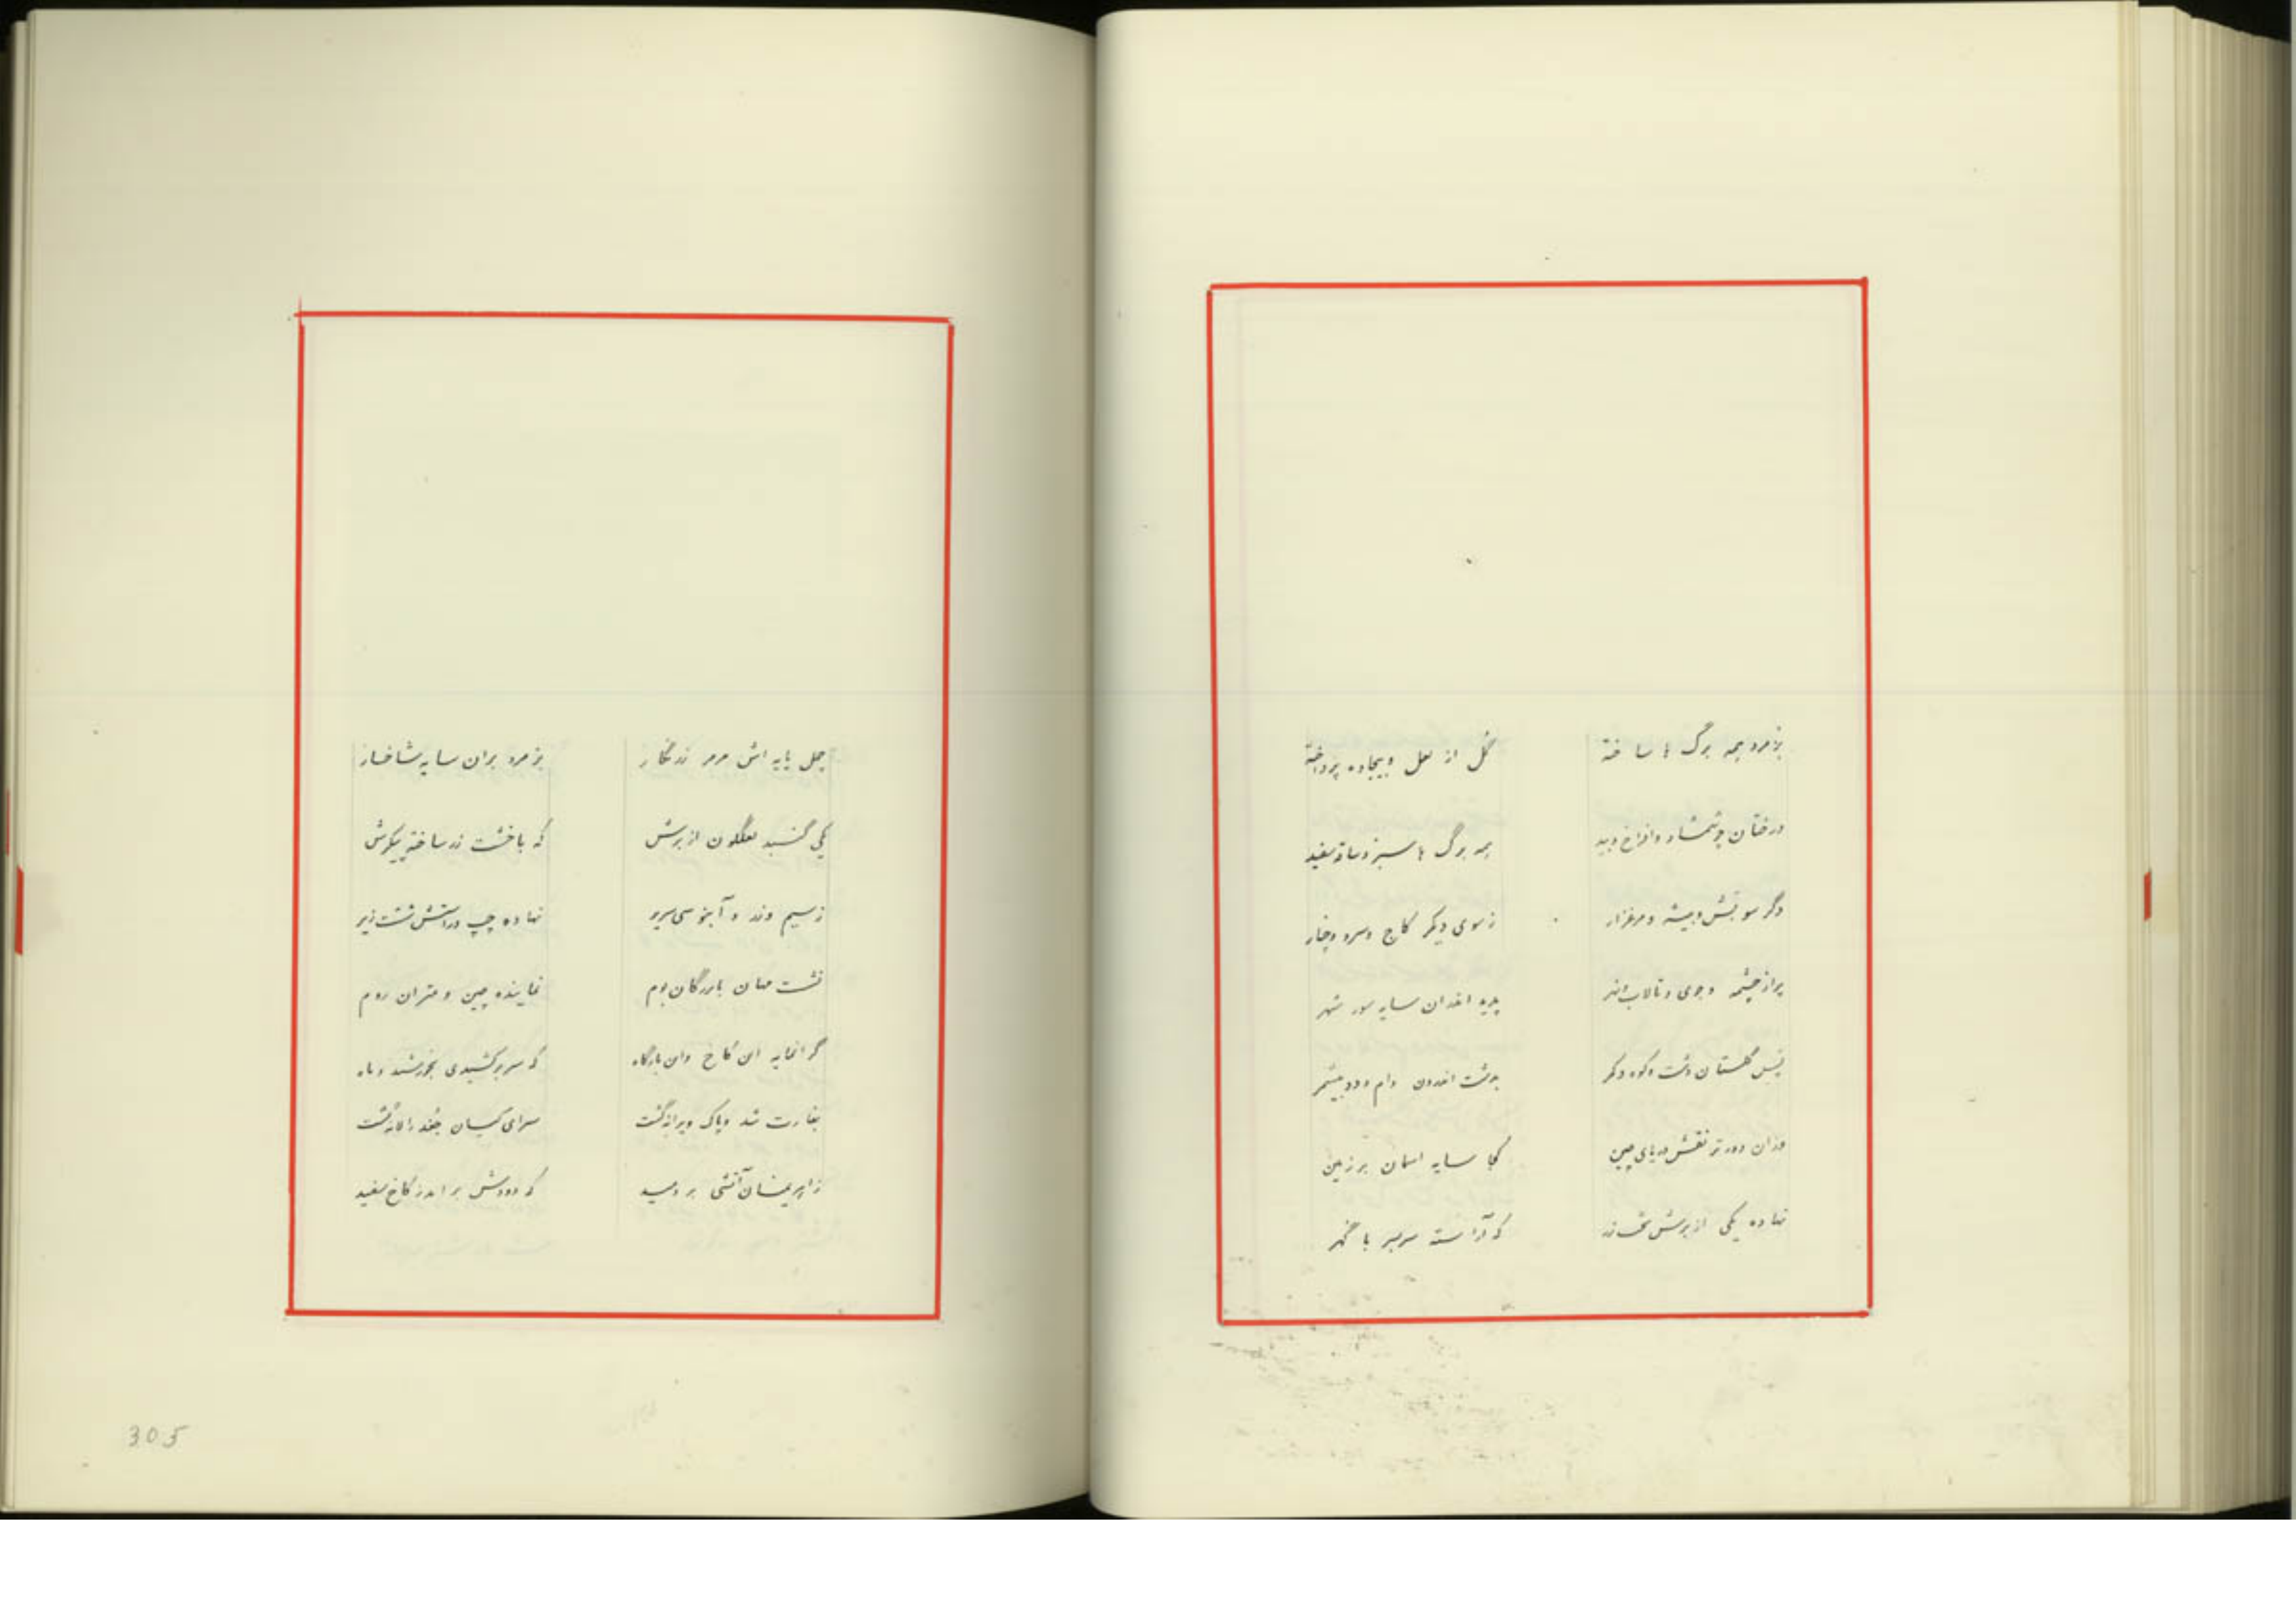 بزمرد همه برگ ها ساخته گل از لعل و بیجاده پرداخته
درختان چو شمشاد و افراخ و بید همه برگ ها سبز و ساقه سفید
دگر سو و بیشه و مرغزار ز سوی دیگر کاج و سرو و چنار
پر از چشمه و جوی و تالاب اندران سایه سور شهر
پس گلستان دشت و کوه و کمر بدشت اندرون دام و دد بیشمر
وزان دورتر نقش دریای چین کجا سایه اسمان بر زمین
نهاده یکی از برش تخت زر که آراسته سربسر با گهر
چل پایه اش مرمر زرنگار بزمرد بران سایه شاخسار
یکی گنبد لعلگون از برش که با خشت زر ساخته پیکرش
ز سیم و زر و آبنوسی سریر نهاده چپ و راستش هشت زیر
نشست مهان با بزرگان بوم نماینده چین و مهتران روم
گرانمایه این کاخ وان بارگاه که سر برکشیدی بخورشید و ماه
بغارت شد و پاک ویرانه گشت سرای کیان جغد را لانه گشت
ز اهریمنان آتشی بر دمید که دودش بر امد ز کاخ سفید
305